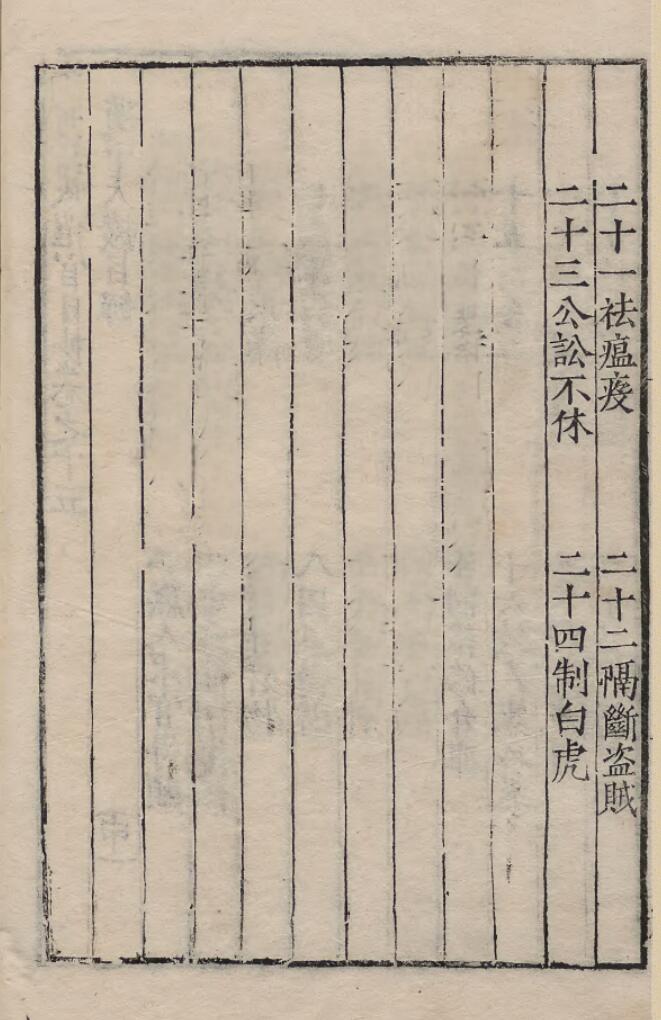 二十一祛瘟疫 二十二隔斷盗賊
二十三公訟不休 二十四制白虎